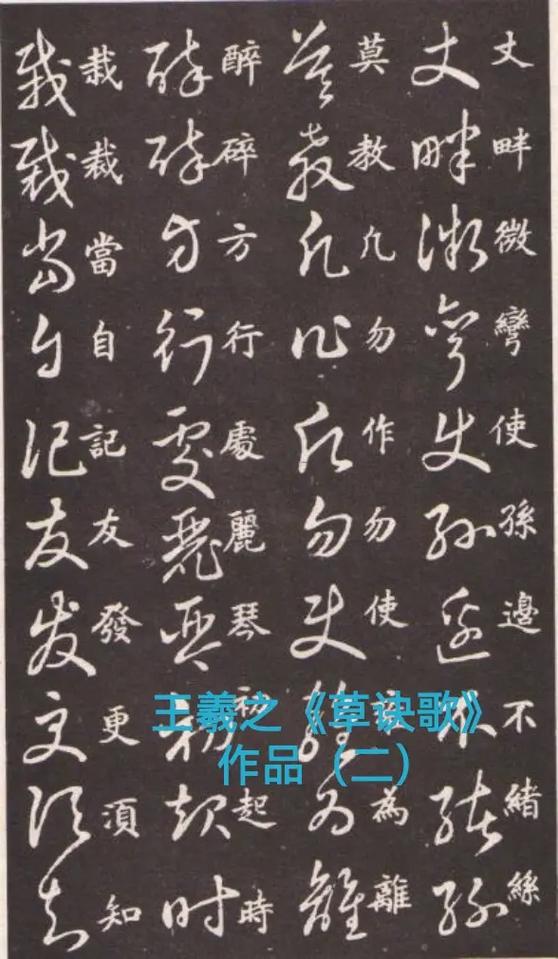 丈畔微彎使孫邊不緒絲
莫教凢勿作勿使為離
醉碎方行處麗琴初起時
栽裁當自記友發更湏知
王羲之《草诀歌》
作品（二）